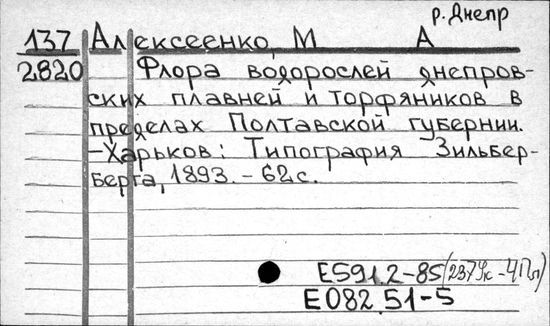 р. Днепр
137 Алексеенко, М А
2820 Флора водорослей днепров-
ских плавней и торфяников в
пределах Полтавской губернии.
-Харьков: Типография Зильбер-
берга, 1893. - 62с.
E591.2-85 (237Ук-4Пл)
E082.51-5